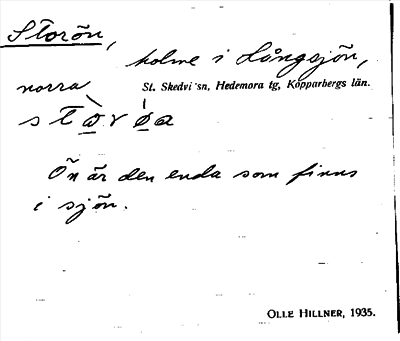 Storön,
holme i Långsjön,
norra
St. Skedvi sn, Hedemora tg, Kopparbergs län.
Ön är den enda som finns
i sjön.
OLLE HILLNER, 1935.